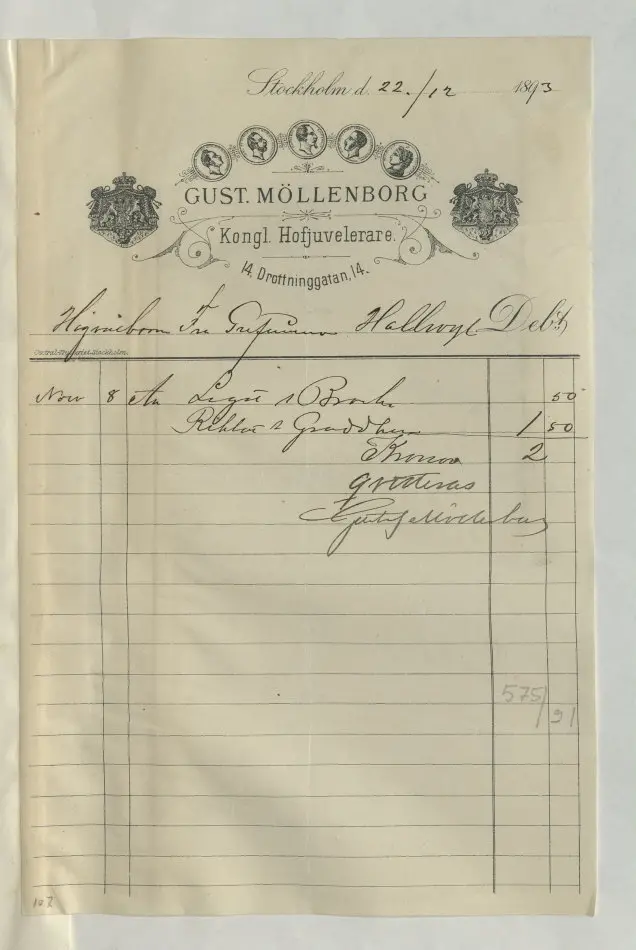 Stockholm d. 22./12 1893
GUST. MÖLLENBORG
Kongl. Hofjuvelerare.
14. Drottninggatan, 14.
Högvälborn Fru Grefvinnan Hallwyl Deb:t
Central-Tryckeriet-Stockholm.
Nov 8 50
1 50
Kronor 2
qvitteras
Gustaf Möllenborg
575/91
107